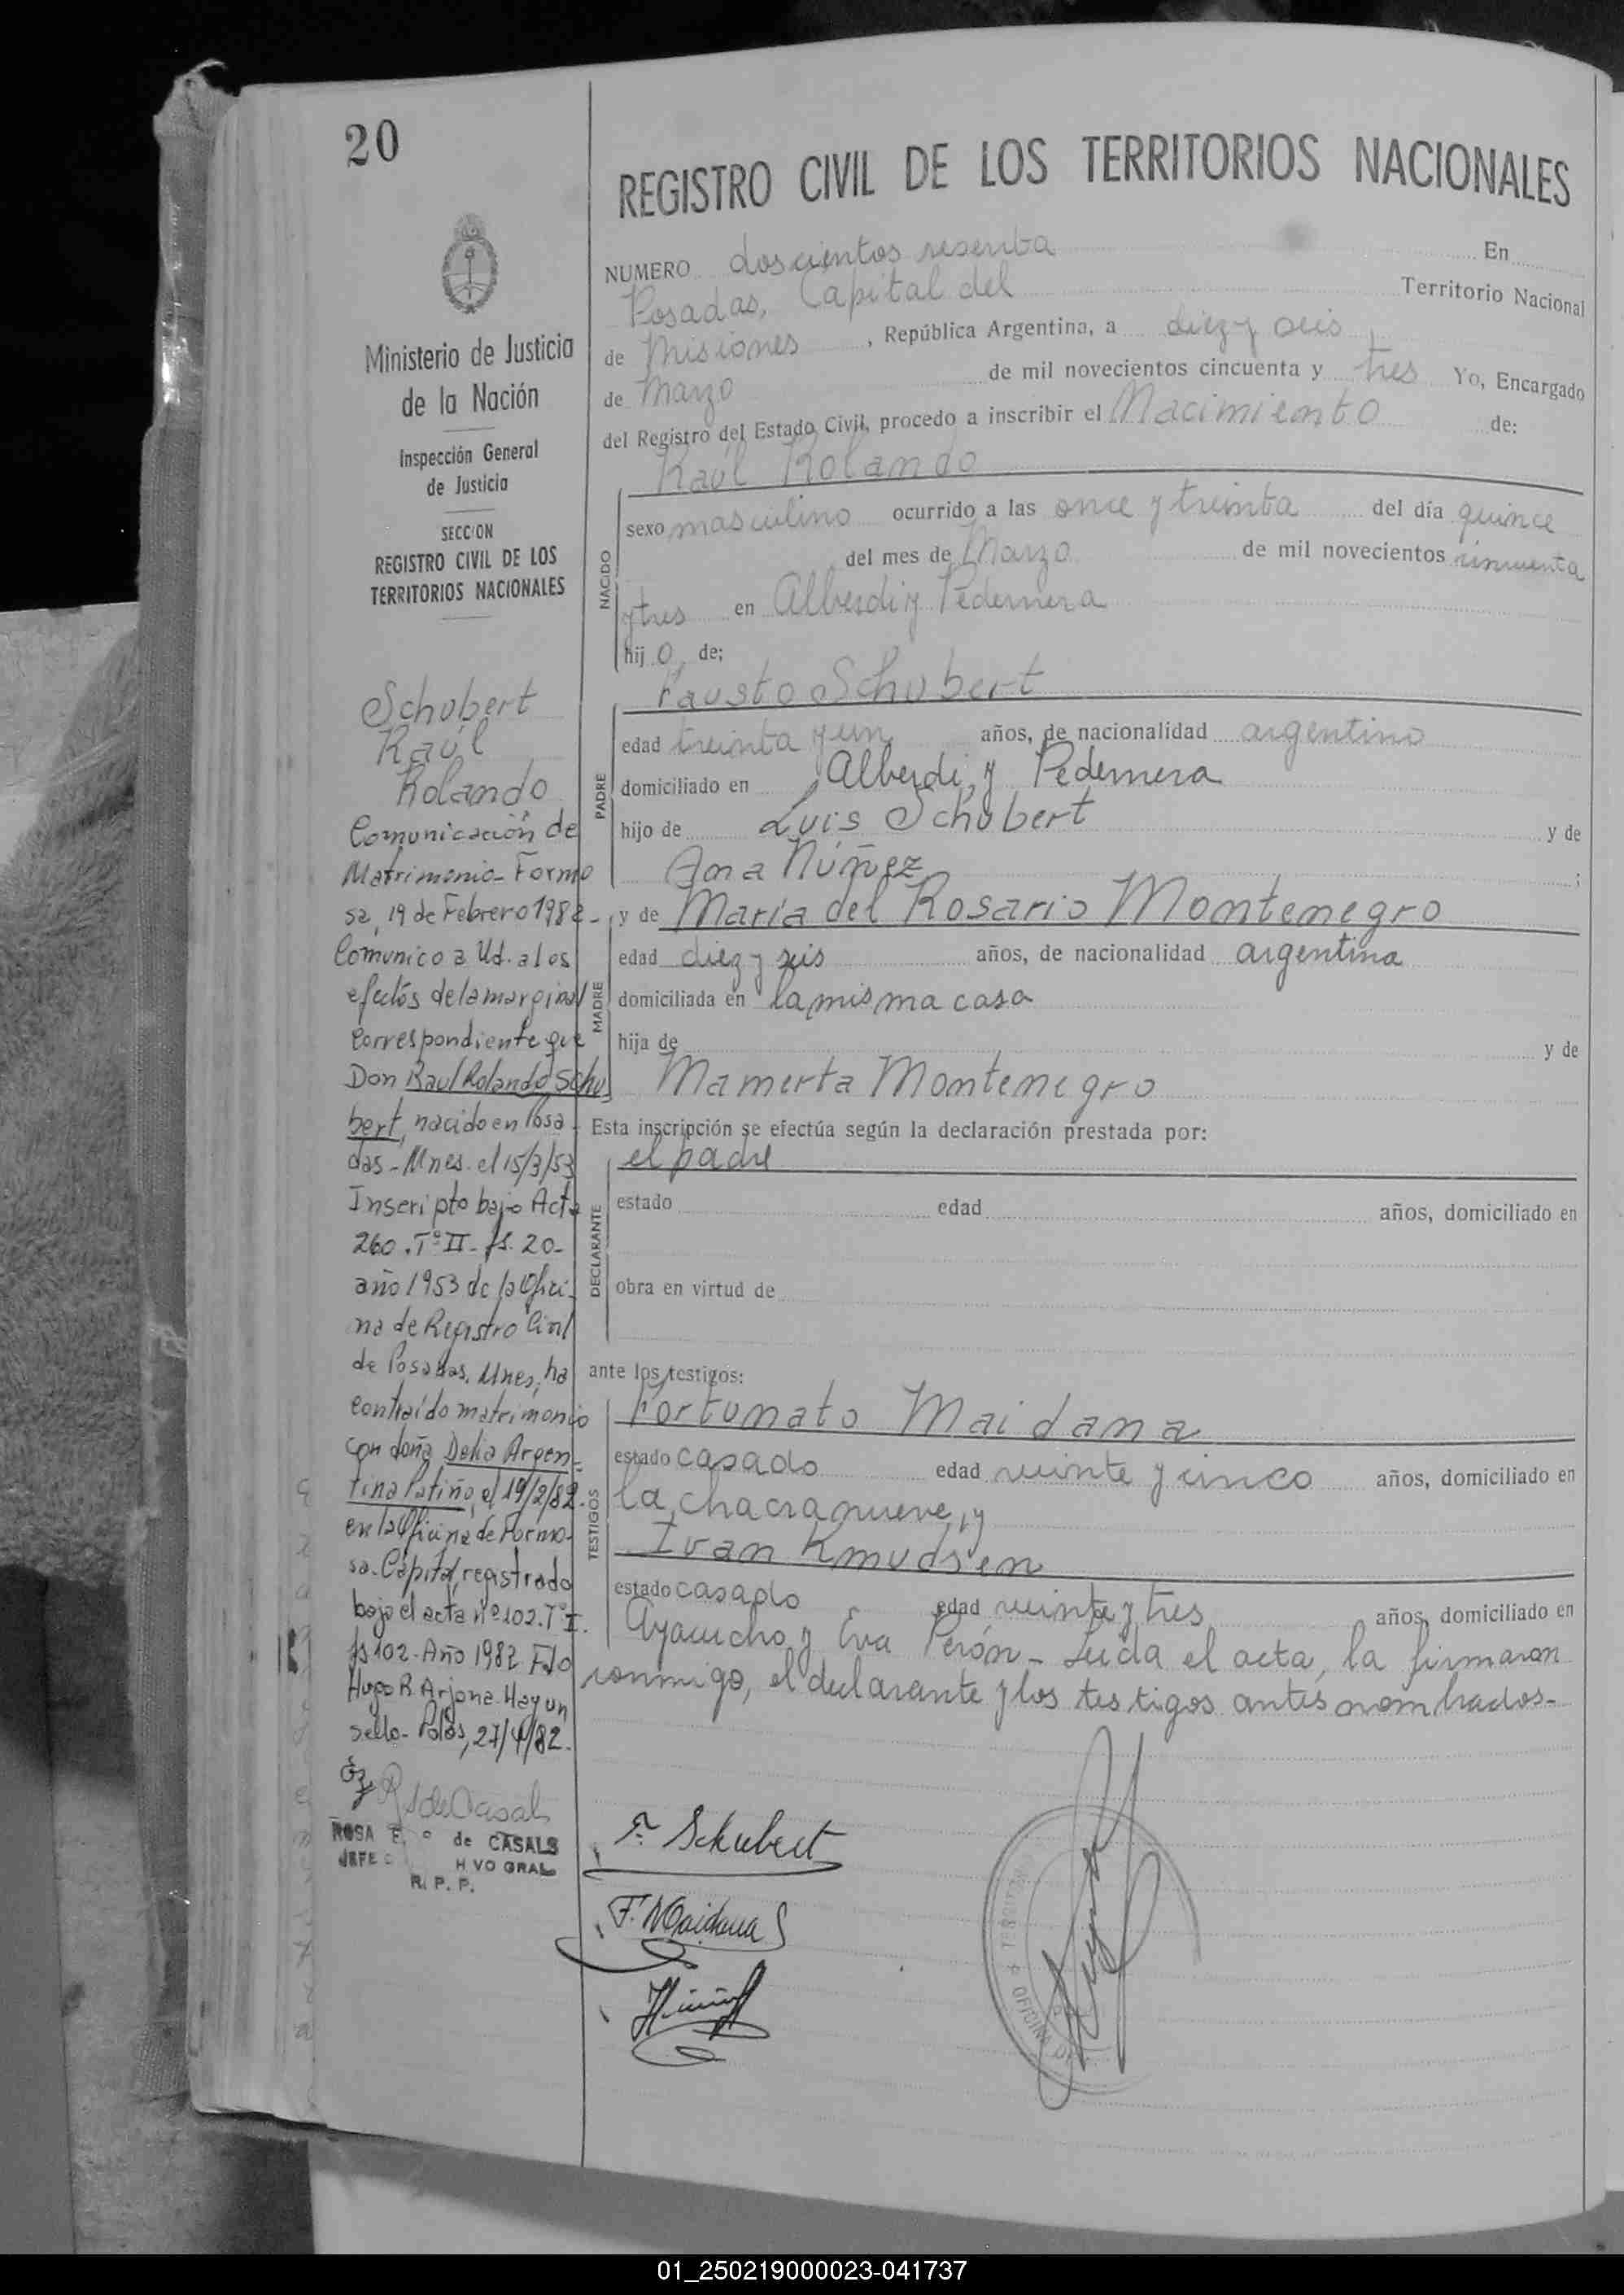 20
Ministerio de Justicia
de la Nación
Inspección General
de Justicia
SECCION
REGISTRO CIVIL DE LOS
TERRITORIOS NACIONALES
Schubert
Raúl
Rolando
Comunicación de
Matrimonio - Formo
sa, 19 de Febrero 1982 -
Comunico a Ud. a los
efectos de la marginal
correspondiente que
Don Raul Rolando Schu
bert, nacido en Posa
das - Mnes. el 15/3/53
Inscripto bajo Acta
260. Tº II - fs. 20 -
año 1953 de la Ofici-
na de Registro Civil
de Posadas. Mnes, ha
contraído matrimonio
con doña Delia Argen-
tina Patiño, el 19/2/82.
en la Oficina de Formo-
sa. Capital, registrado
bajo el acta nº 102. Tº I.
fs 102 - Año 1982 Fdo
Hugo R. Arjona. Hay un
sello - Pdas, 27/4/82.
R S de Casals
ROSA E. de CASALS
JEFE VO GRAL
R. P. P.
REGISTRO CIVIL DE LOS TERRITORIOS NACIONALES
NUMERO doscientos sesenta En
Posadas, Capital del Territorio Nacional
de Misiones, República Argentina, a diez y seis
de Marzo de mil novecientos cincuenta y tres Yo, Encargado
del Registro del Estado Civil, procedo a inscribir el Nacimiento de:
Raúl Rolando
NACIDO
sexo masculino ocurrido a las once y treinta del día quince
del mes de Marzo de mil novecientos cincuenta
y tres en Alberdi y Pedernera
hijo de;
Fausto Schubert
PADRE
edad treinta y un años, de nacionalidad argentino
domiciliado en Alberdi y Pedernera
hijo de Luis Schubert y de
Ana Núñez ;
y de María del Rosario Montenegro
MADRE
edad diez y seis años, de nacionalidad argentina
domiciliada en la misma casa
hija de y de
Mamerta Montenegro
Esta inscripción se efectúa según la declaración prestada por:
el padre
DECLARANTE
estado edad años, domiciliado en
obra en virtud de
ante los testigos:
Fortunato Maidana
TESTIGOS
estado casado edad veinte y cinco años, domiciliado en
la chacra nueve, y
Ivan Knudsen
estado casado edad veinte y tres años, domiciliado en
Ayacucho y Eva Perón - Leída el acta, la firmaron
conmigo, el declarante y los testigos antes nombrados -
F. Schubert
F. Maidana
OFICINA
01_250219000023-041737